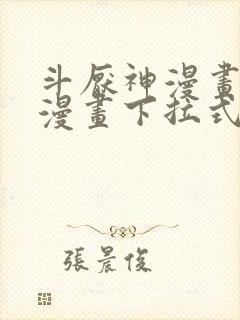 斗厭神漫畫
漫畫下拉式
張晨俊